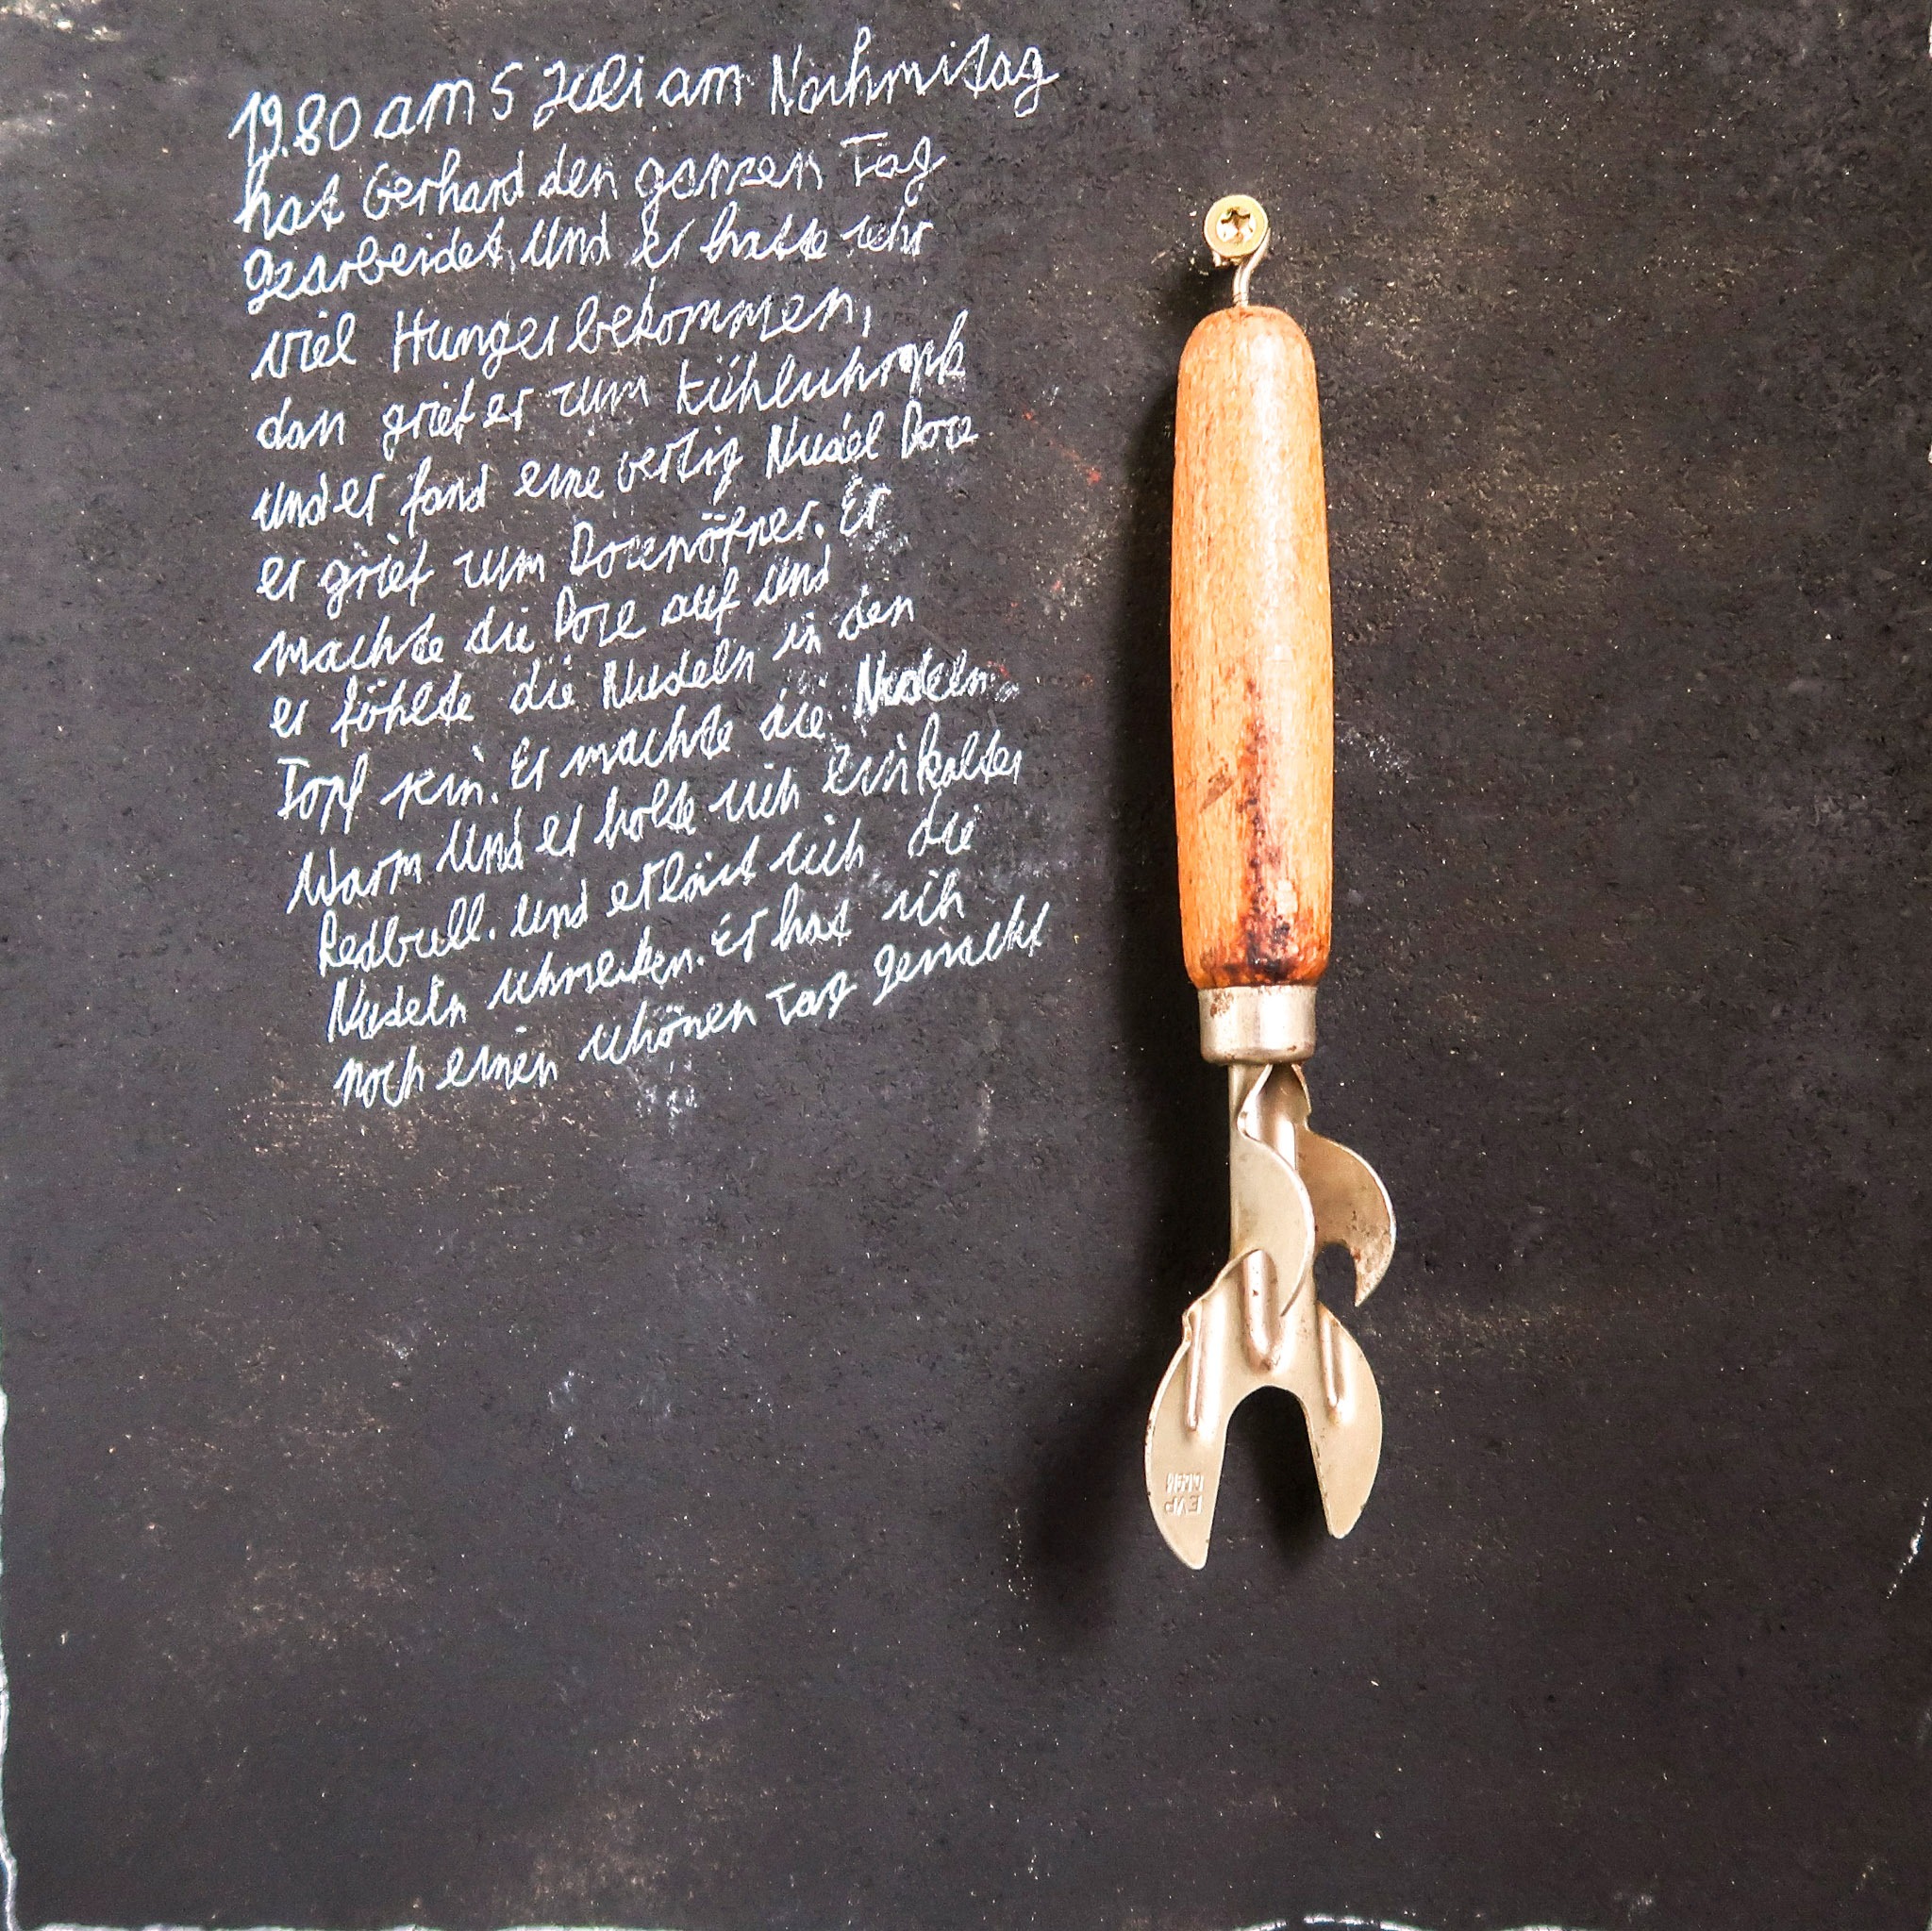 19.80 am 5 Juli am Nachmitag
hat Gerhard den ganzen Tag
gearbeidet, Und er hatte sehr
viel Hunger bekommen,
dan grief er zum Kühlschrank
und er fand eine vertig Nudel Doze
er grief zum Dozenöfner. Er
machte die Doze auf und
er föhlte die Nudeln in den
Topf rein. Er machte die Nudeln
Warm Und er holte sich ein kalter
Redbull. und er läst sich die
Nudeln schmecken. Er hat sich
noch einen schönen Tag gemacht
EVP